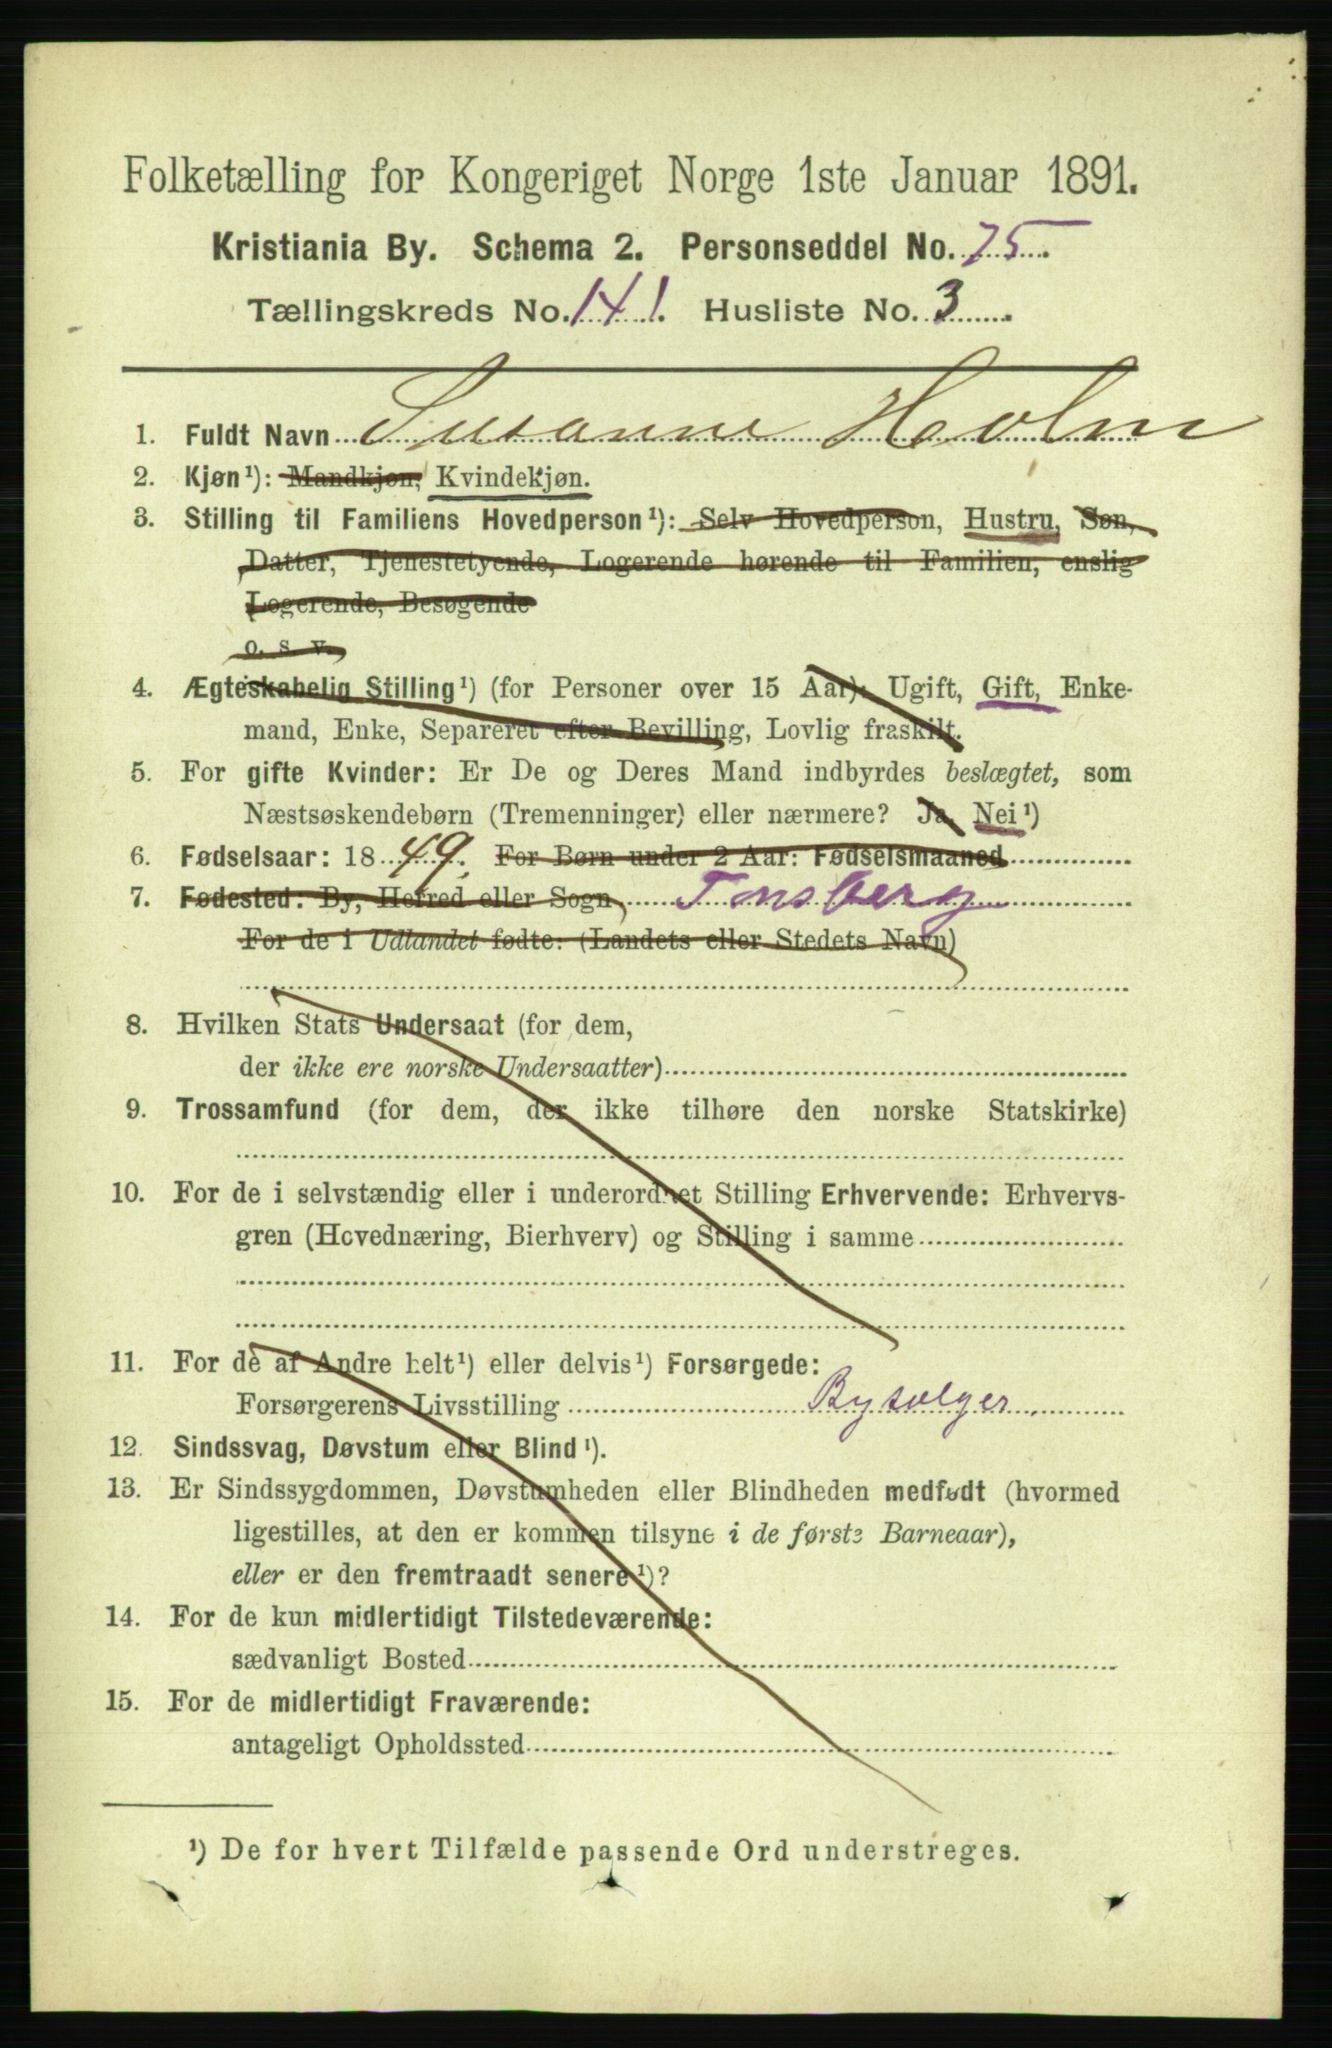 Folketælling for Kongeriget Norge 1ste Januar 1891.
Kristiania By. Schema 2. Personseddel No. 75.
Tællingskreds No. 141. Husliste No. 3
1. Fuldt Navn Susanne Holm
2. Kjøn¹): Mandkjøn, Kvindekjøn.
3. Stilling til Familiens Hovedperson¹): Selv Hovedperson, Hustru, Søn,
Datter, Tjenestetyende, Logerende hørende til Familien, enslig
Logerende, Besøgende
o. s. v.
4. Ægteskabelig Stilling¹) (for Personer over 15 Aar): Ugift, Gift, Enke-
mand, Enke, Separeret efter Bevilling, Lovlig fraskilt.
5. For gifte Kvinder: Er De og Deres Mand indbyrdes beslægtet, som
Næstsøskendebørn (Tremenninger) eller nærmere? Ja, Nei ¹)
6. Fødselsaar: 1849. For Børn under 2 Aar: Fødselsmaaned
7. Fødested: By, Herred eller Sogn Tønsberg
For de i Udlandet fødte: (Landets eller Stedets Navn)
8. Hvilken Stats Undersaat (for dem,
der ikke ere norske Undersaatter)
9. Trossamfund (for dem, der ikke tilhøre den norske Statskirke)
10. For de i selvstændig eller i underordnet Stilling Erhvervende: Erhvervs-
gren (Hovednæring, Bierhverv) og Stilling i samme
11. For de af Andre helt¹) eller delvis¹) Forsørgede:
Forsørgerens Livsstilling Bysælger
12. Sindssvag, Døvstum eller Blind ¹).
13. Er Sindssygdommen, Døvstumheden eller Blindheden medfødt (hvormed
ligestilles, at den er kommen tilsyne i de første Barneaar),
eller er den fremtraadt senere ¹)?
14. For de kun midlertidigt Tilstedeværende:
sædvanligt Bosted
15. For de midlertidigt Fraværende:
antageligt Opholdssted
¹) De for hvert Tilfælde passende Ord understreges.